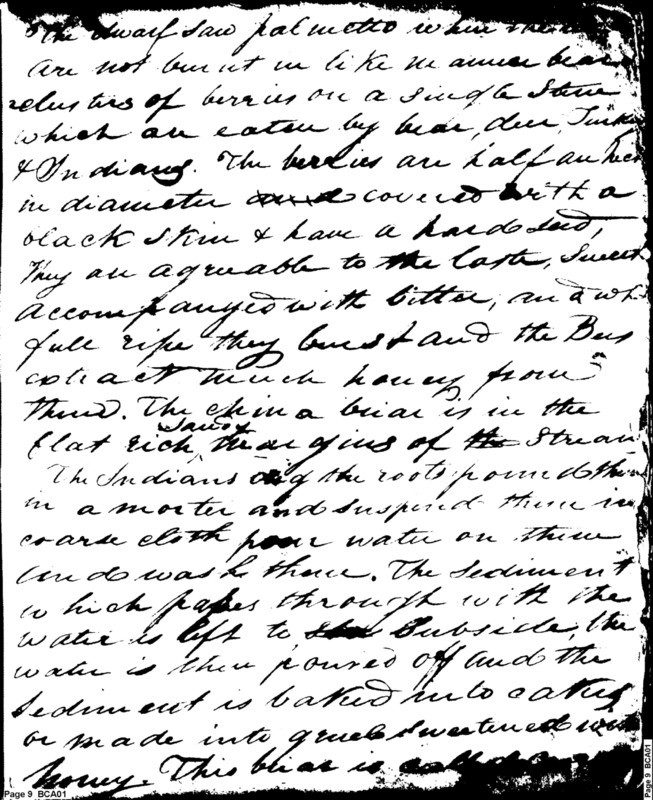 The dwarf saw palmetto when the
are not burnt in like manner bear
clusters of berries on a single stem
which are eaten by bear, deer, Turkey
& Indians. The berries are half an inch
in diameter covered with a
black skin & have a hard seed,
They are agreeable to the taste, Sweet
accompanyed with bitter, and when
full ripe they burst and the Bees
extract much honey from
them. The china briar is in the
Sandy
flat rich, margins of the Stream
The Indians dig the roots pound them
in a morter and suspend them in
coarse cloth pour water on them
and wash them. The Sediment
which passes through with the
water is left to Subside, the
water is then poured off and the
Sediment is baked into cakes
or made into gruel sweetened with
honey. This briar is called
Page 9 BCA01
Page 9 BCA01